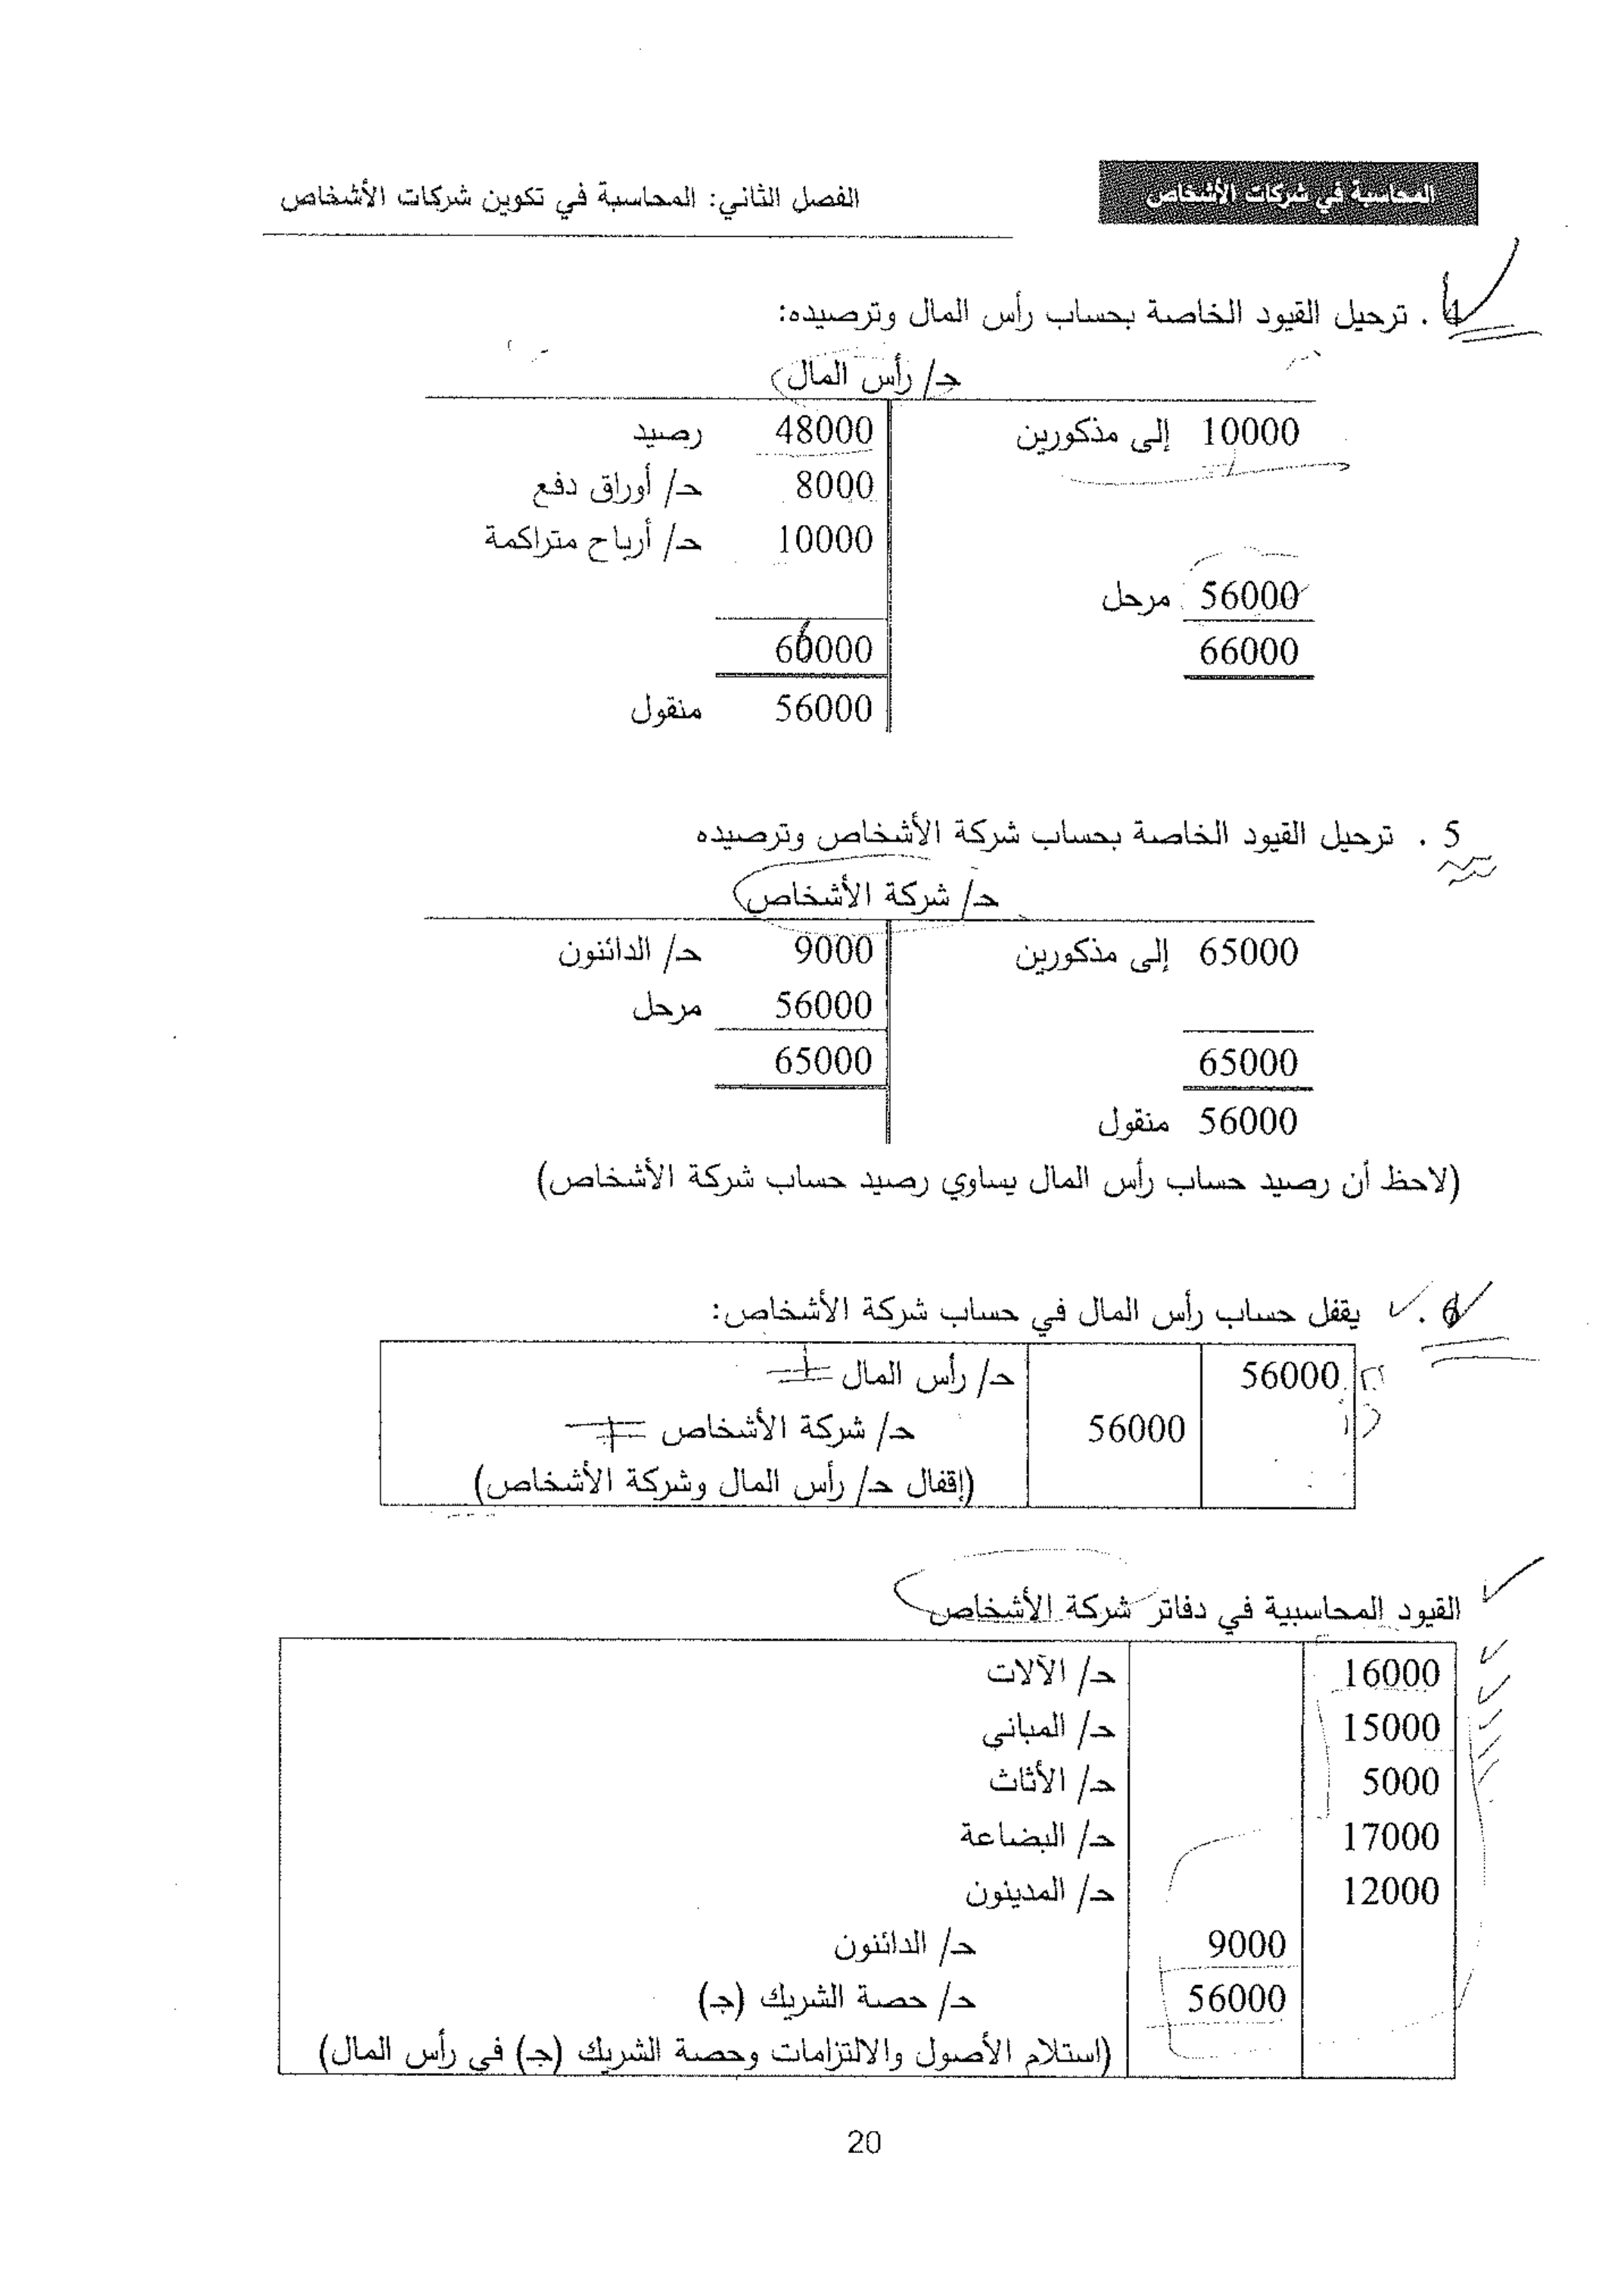 المحاسبة في شركات الأشخاص
الفصل الثاني: المحاسبة في تكوين شركات الأشخاص
4. ترحيل القيود الخاصة بحساب رأس المال وترصيده:
حـ/ رأس المال
10000 إلى مذكورين 48000 رصيد
8000 حـ/ أوراق دفع
10000 حـ/ أرباح متراكمة
56000 مرحل
66000 66000
56000 منقول
5. ترحيل القيود الخاصة بحساب شركة الأشخاص وترصيده
حـ/ شركة الأشخاص
65000 إلى مذكورين 9000 حـ/ الدائنون
56000 مرحل
65000 65000
56000 منقول
(لاحظ أن رصيد حساب رأس المال يساوي رصيد حساب شركة الأشخاص)
6. يقفل حساب رأس المال في حساب شركة الأشخاص:
56000 حـ/ رأس المال
56000 حـ/ شركة الأشخاص
(إقفال حـ/ رأس المال وشركة الأشخاص)
القيود المحاسبية في دفاتر شركة الأشخاص
16000 حـ/ الآلات
15000 حـ/ المباني
5000 حـ/ الأثاث
17000 حـ/ البضاعة
12000 حـ/ المدينون
9000 حـ/ الدائنون
56000 حـ/ حصة الشريك (جـ)
(استلام الأصول والالتزامات وحصة الشريك (جـ) في رأس المال)
20